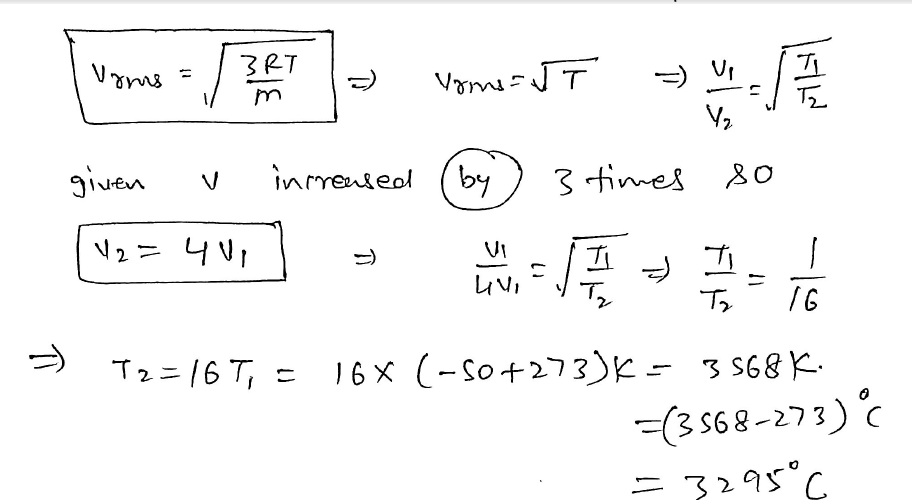 Vrms = √(3RT/m) ⇒ Vrms = √T ⇒ V1/V2 = √(T1/T2)
given v increased by 3 times so
V2 = 4V1 ⇒ V1/4V1 = √(T1/T2) ⇒ T1/T2 = 1/16
⇒ T2 = 16T1 = 16 × (-50+273)K = 3568K.
=(3568-273)°C
= 3295°C